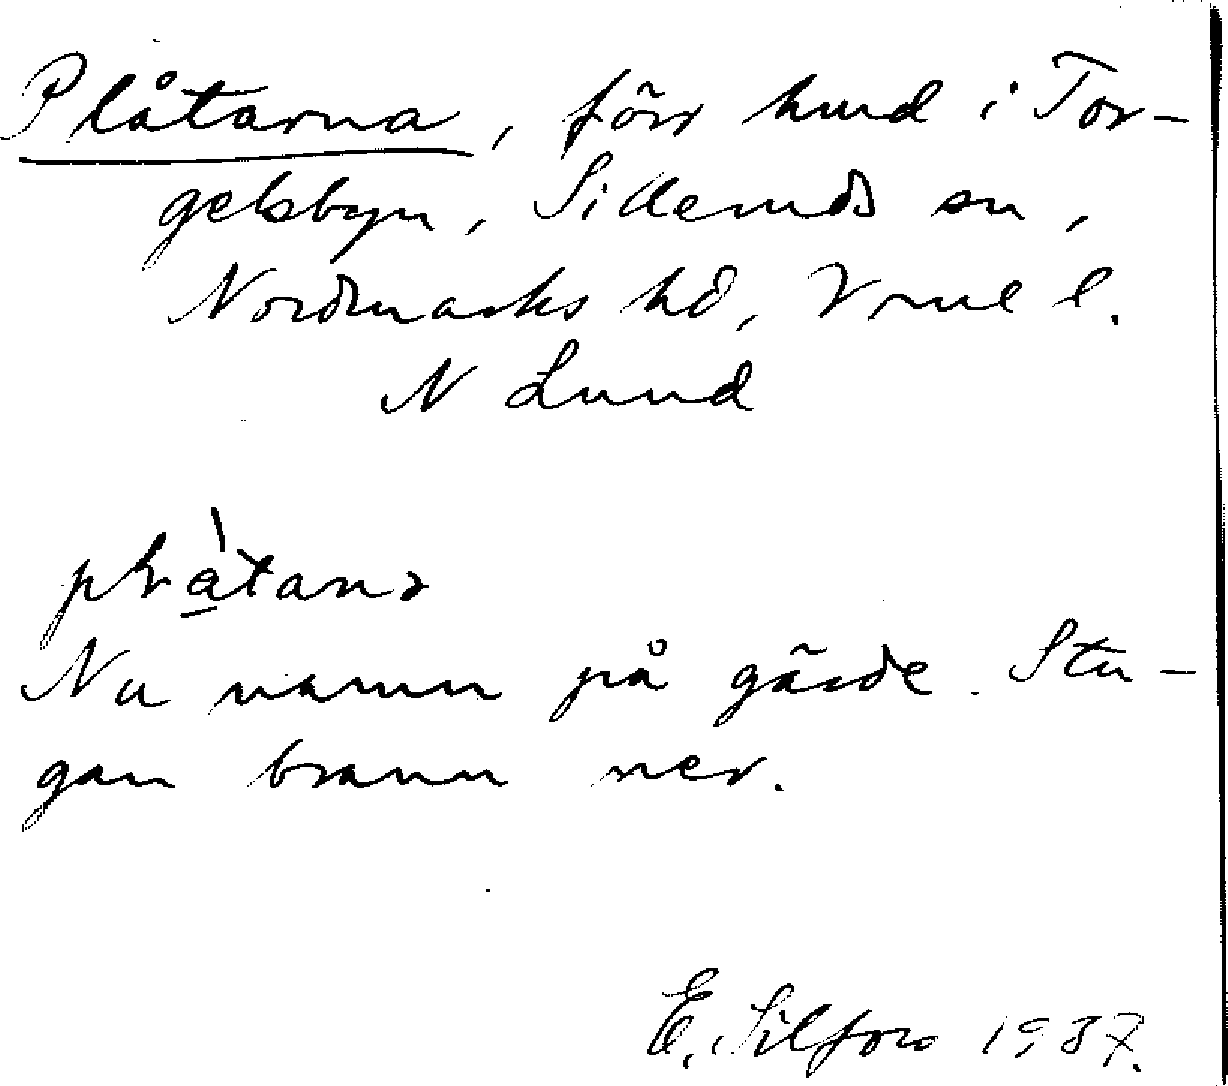 Plåtarna, förr hmd i Tor-
gelsbyn, Silleruds sn,
Nordmarks hd, Vrml l.
N Lund
Nu namn på gärde. Stu-
gan brann ner.
E. Silfors 1937.